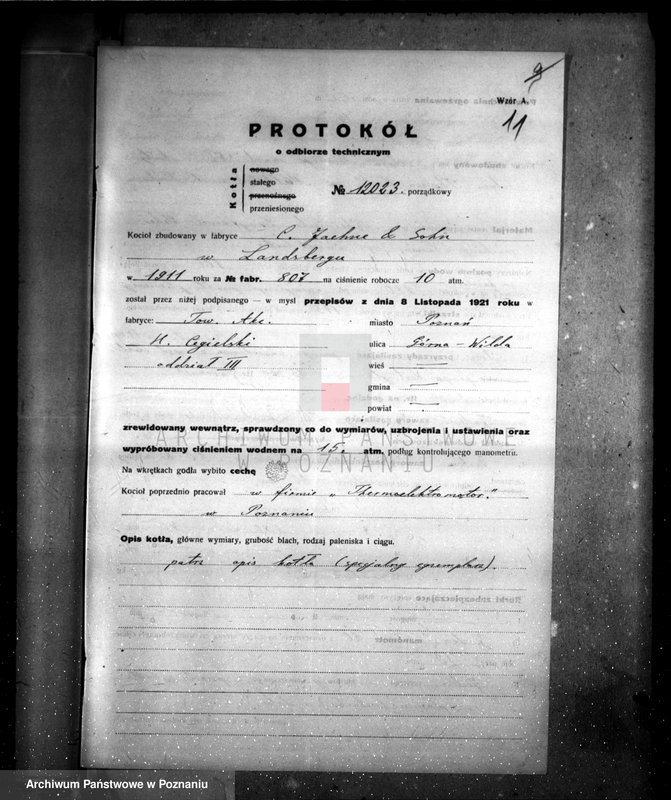 Wzór A.
11
PROTOKÓŁ
o odbiorze technicznym
Kotła
nowego
stałego
przenośnego
przeniesionego
№ 12023. porządkowy
Kocioł zbudowany w fabryce C. Jaehne & Sohn
w Landsbergu
w 1911 roku za № fabr. 807 na ciśnienie robocze 10 atm.
został przez niżej podpisanego — w myśl przepisów z dnia 8 Listopada 1921 roku w
fabryce: Tow. Akc. miasto Poznań
H. Cegielski ulica Górna - Wilda
oddział III wieś —
gmina —
powiat —
zrewidowany wewnątrz, sprawdzony co do wymiarów, uzbrojenia i ustawienia oraz
wypróbowany ciśnieniem wodnem na 15. atm. podług kontrolującego manometru.
ARCHIWUM PAŃSTWOWE
W POZNANIU
Na wkrętkach godła wybito cechę
Kocioł poprzednio pracował w firmie „Thermoelektromotor."
w Poznaniu
Opis kotła, główne wymiary, grubość blach, rodzaj paleniska i ciągu.
patrz opis kotła (specjalny egzemplarz).
Archiwum Państwowe w Poznaniu